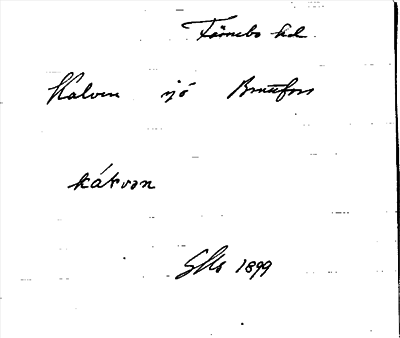 Färnebo hd.
Kalven sjö Brattfors
kákvan
1899